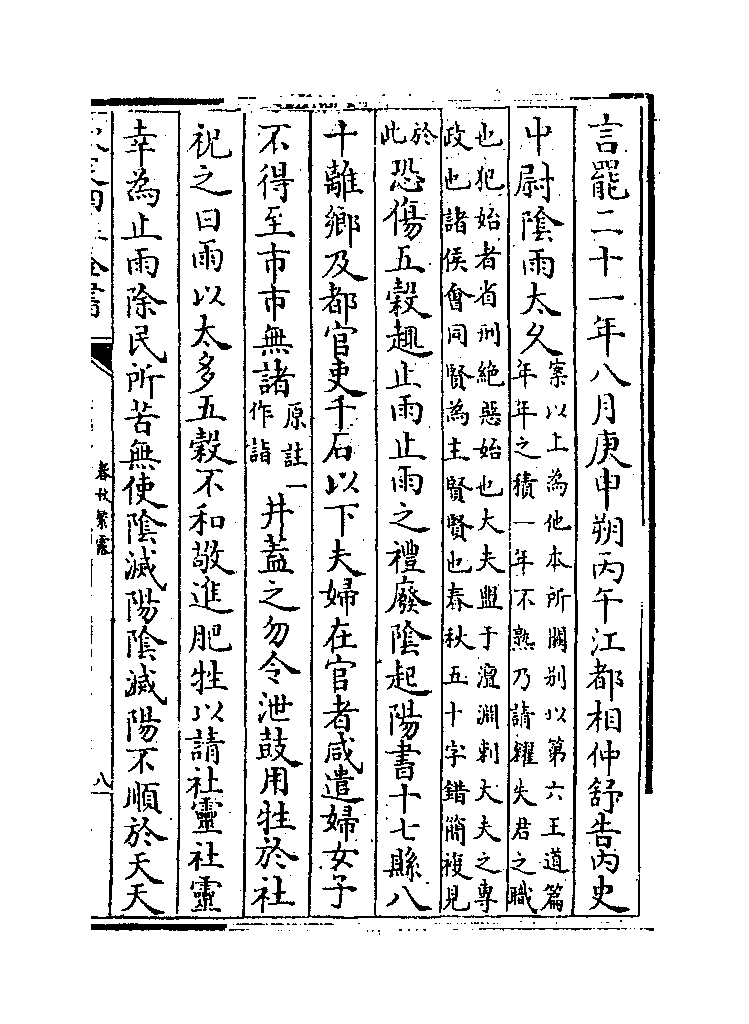 言罷二十一年八月庚申朔丙午江都相仲舒告內史
中尉陰雨太久
案以上為他本所闕别以第六王道篇
年年之積一年不熟乃請糴失君之職
也犯始者省刑絶惡始也大夫盟于澶淵刺大夫之專
政也諸侯會同賢為主賢賢也春秋五十字錯簡複見
於
此
恐傷五穀趣止雨止雨之禮廢陰起陽書十七縣八
十離鄉及都官吏千石以下夫婦在官者咸遣婦女子
不得至市市無諸
原註一
作詣
井蓋之勿令泄鼓用牲於社
祝之曰雨以太多五穀不和敬進肥牲以請社靈社靈
幸為止雨除民所苦無使陰滅陽陰滅陽不順於天天
春秋繁露
八